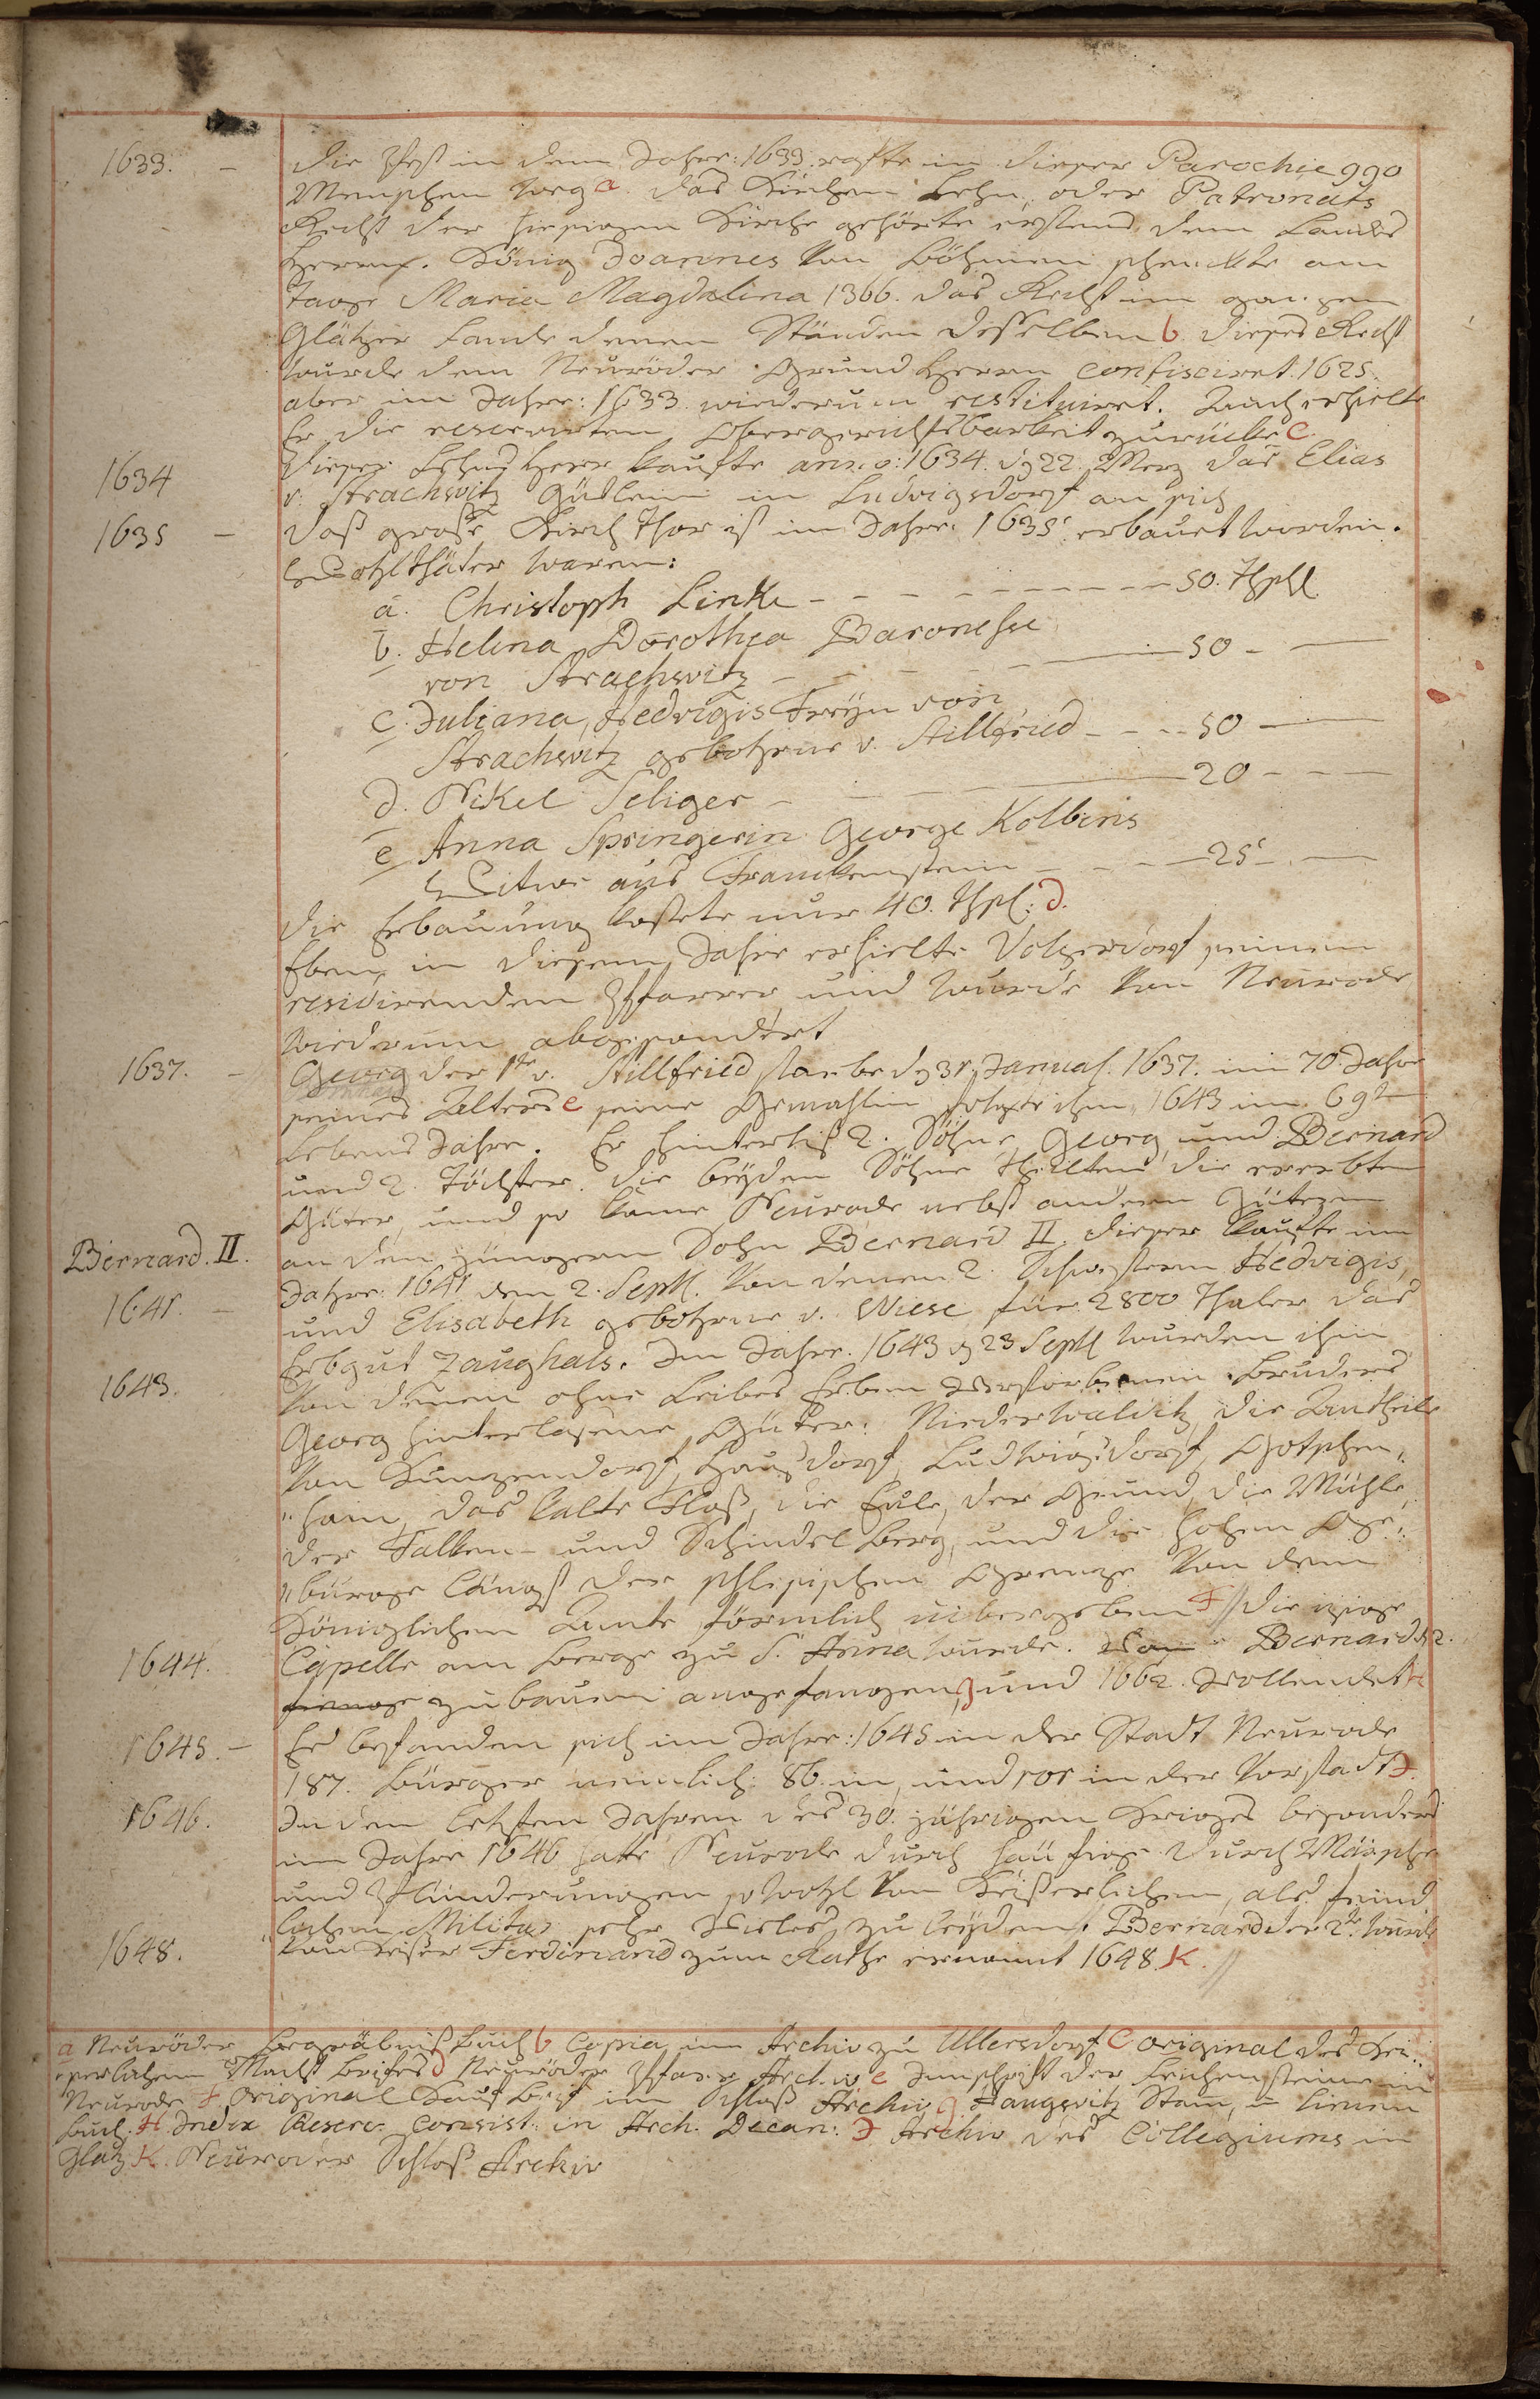 1633. - Die Pest in dem Jahre: 1633. rafte in dieser Parochie 990
Menschen weg a. das Kirchen Lehn, oder Patronats
Recht der hiesigen Kirche gehörte erstens dem Landes
Herrn. König Joannes von Böhmen schenckte am
Tage Maria Magdalina 1366. das Recht im ganzen
Glätzer Lande denen Ständen desselben b. dieses Recht
wurde dem Neuröder Grund Herrn confisciret. 1625.
aber im Jahre: 1633. wiederum restituiret. Auch erhielte
Er die reservirten Obergerichtsbarkeit zurücke c.
1634 Dieser Lehns Herr kaufte anno: 1634. dg 22. Merz das Elias
v. Strachwitz Gütlein in Ludvigsdorf an sich
1635 - Daß große Kirch Thor ist im Jahre: 1635 erbauet worden.
Wohlthäter waren:
a. Christoph Linke - - - - - - - - - 50. Thsl
b. Helena Dorothea Baronesse
von Strachwitz - - - - - 50 - -
c. Juliana, Hedvigis Freyn von
Strachwitz gebohrne v. Stillfried - - - 50 -
d. Nikel Seliger - - - 20 - - -
e Anna Springerin George Kolbens
Witwe aus Franckenstein - - - 25 - -
Die Erbauung kostete nur 40. Thsl: d.
Eben in diesem Jahre erhielte Volpersdorf seinen
residirenden Pfarrer und wurde von Neurode
wiederum abgesondert
1637. - Georg der 1te v. Stillfried starbe dg 31. Januar. 1637. im 70. Jahre
seines Alters e seine Gemahlin folgte ihm 1643 im 69t
Lebens Jahre. Er hinterliß 2. Söhne Georg und Bernard
und 2. Töchter. Die beyden Söhne theilten die ererbten
Güter, und so kame Neurode nebst andern Gütern
Bernard. II. an den jüngern Sohn Bernard II. dieser kaufte im
1641. - Jahre: 1641 den 2. Sept. von denen 2. Schwestern Hedvigis,
und Elisabeth gebohrne v. Wiese für 2800 Thaler das
Erbgut Zaughals. Im Jahre. 1643 dg 23 Sept wurden ihm
1643. von denen ohne Leibes Erben verstorbenen Bruders
Georg hinterlasene Güter: Niederwalditz, die Antheile
von Kunzendorf, Hausdorf, Ludwigsdorf, Gotschen„
„hain, das kalte Floß, die Eule, der Grund, die Mühle,
der Falken- und Schindel Berg, und die hohen Ge„
„bürge längst der schlesischen Grenze von dem
Königlichen Amte förmlich übergeben f // die izige
1644. Capelle am Berge zu S. Anna wurde. von Bernard d. 2.
zubauen angefangen g und 1662. vollendet h
1645. - Es befanden sich im Jahre: 1645 in der Stadt Neurode
187. Bürger nemlich: 86. in, und 101 in der Vorstadt J.
1646. In den letzten Jahren des 30. jährigen Krieges besonders
im Jahre 1646 hatte Neurode durch häufige durch Märsche
und Plünderungen sowohl von Keißerlichen, als feind
„lichen Militar sehr vieles zu leyden. Bernard der 2te. wurde
1648. von Keißer Ferdinand zum Rathe ernannt 1648. K. //
a Neuröder Begräbniß Buch b Copia im Archiv zu Ullersdorf c original des Kei„
„serlichen Macht Brifes d Neuröder Pfarr Archiv e Innschrift der Leichensteine in
Neurode f original Kauf Brief im Schloß Archiv g Haugwitz Stam, u Linien
Buch. H. Index Reserv. Consist: in Arch. Decan: J Archiv des Collegiums in
Glatz K. Neuroder Schloß Archiv